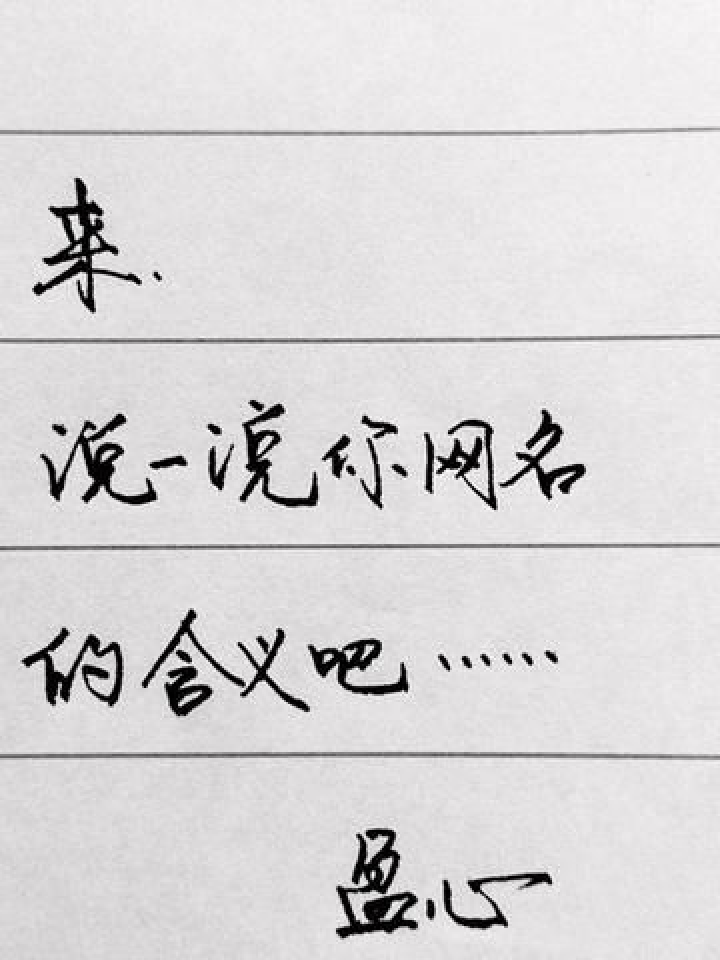 来.
说一说你网名
的含义吧……
盈心